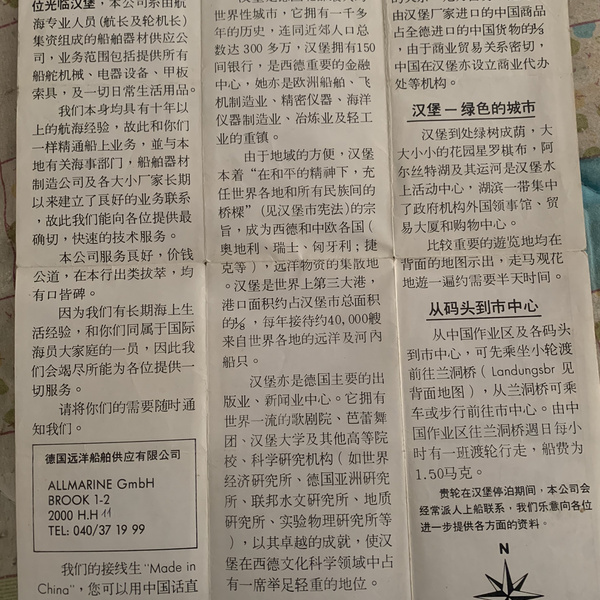 位光临汉堡，本公司系由航
海专业人员(航长及轮机长)
集资组成的船舶器材供应公
司，业务范围包括提供所有
船舵机械、电器设备、甲板
索具，及一切日常生活用品。
我们本身均具有十年以
上的航海经验，故此和你们
一样精通船上业务，並与本
地有关海事部门，船舶器材
制造公司及各大小厂家长期
以来建立了良好的业务联系
，故此我们能向各位提供最
确切，快速的技术服务。
本公司服务良好，价钱
公道，在本行出类拔萃，均
有口皆碑。
因为我们有长期海上生
活经验，和你们同属于国际
海员大家庭的一员，因此我
们会竭尽所能为各位提供一
切服务。
请将你们的需要随时通
知我们。
德国远洋船舶供应有限公司
ALLMARINE GmbH
BROOK 1-2
2000 H.H 11
TEL: 040/37 19 99
我们的接线生"Made in
China"，您可以用中国话直
世界性城市，它拥有一千多
年的历史，连同近郊人口总
数达300多万，汉堡拥有150
间银行，是西德重要的金融
中心，她亦是欧洲船舶、飞
机制造业、精密仪器、海洋
仪器制造业、冶炼业及轻工
业的重镇。
由于地域的方便，汉堡
本着"在和平的精神下，充
任世界各地和所有民族间的
桥樑"(见汉堡市宪法)的宗
旨，成为西德和中欧各国(
奥地利、瑞士、匈牙利；捷
克等)，远洋物资的集散地
。汉堡是世界上第三大港，
港口面积约占汉堡市总面积
的⅙，每年接待约40,000艘
来自世界各地的远洋及河内
船只。
汉堡亦是德国主要的出
版业、新闻业中心。它拥有
世界一流的歌剧院、芭蕾舞
团、汉堡大学及其他高等院
校、科学研究机构(如世界
经济研究所、德国亚洲研究
所、联邦水文研究所、地质
研究所、实验物理研究所等
)，以其卓越的成就，使汉
堡在西德文化科学领域中占
有一席举足轻重的地位。
由汉堡厂家进口的中国商品
占全德进口的中国货物的⅓
，由于商业贸易关系密切，
中国在汉堡亦设立商业代办
处等机构。
汉堡－绿色的城市
汉堡到处绿树成荫，大
大小小的花园星罗棋布，阿
尔丝特湖及其运河是汉堡水
上活动中心，湖滨一带集中
了政府机构外国领事馆、贸
易大厦和购物中心。
比较重要的遊览地均在
背面的地图示出，走马观花
地遊一遍约需要半天时间。
从码头到市中心
从中国作业区及各码头
到市中心，可先乘坐小轮渡
前往兰洞桥(Landungsbr 见
背面地图)，从兰洞桥可乘
车或步行前往市中心。由中
国作业区往兰洞桥遇日每小
时有一班渡轮行走，船费为
1.50马克。
贵轮在汉堡停泊期间，本公司会
经常派人上船联系，我们乐意向各位
进一步提供各方面的资料。
N